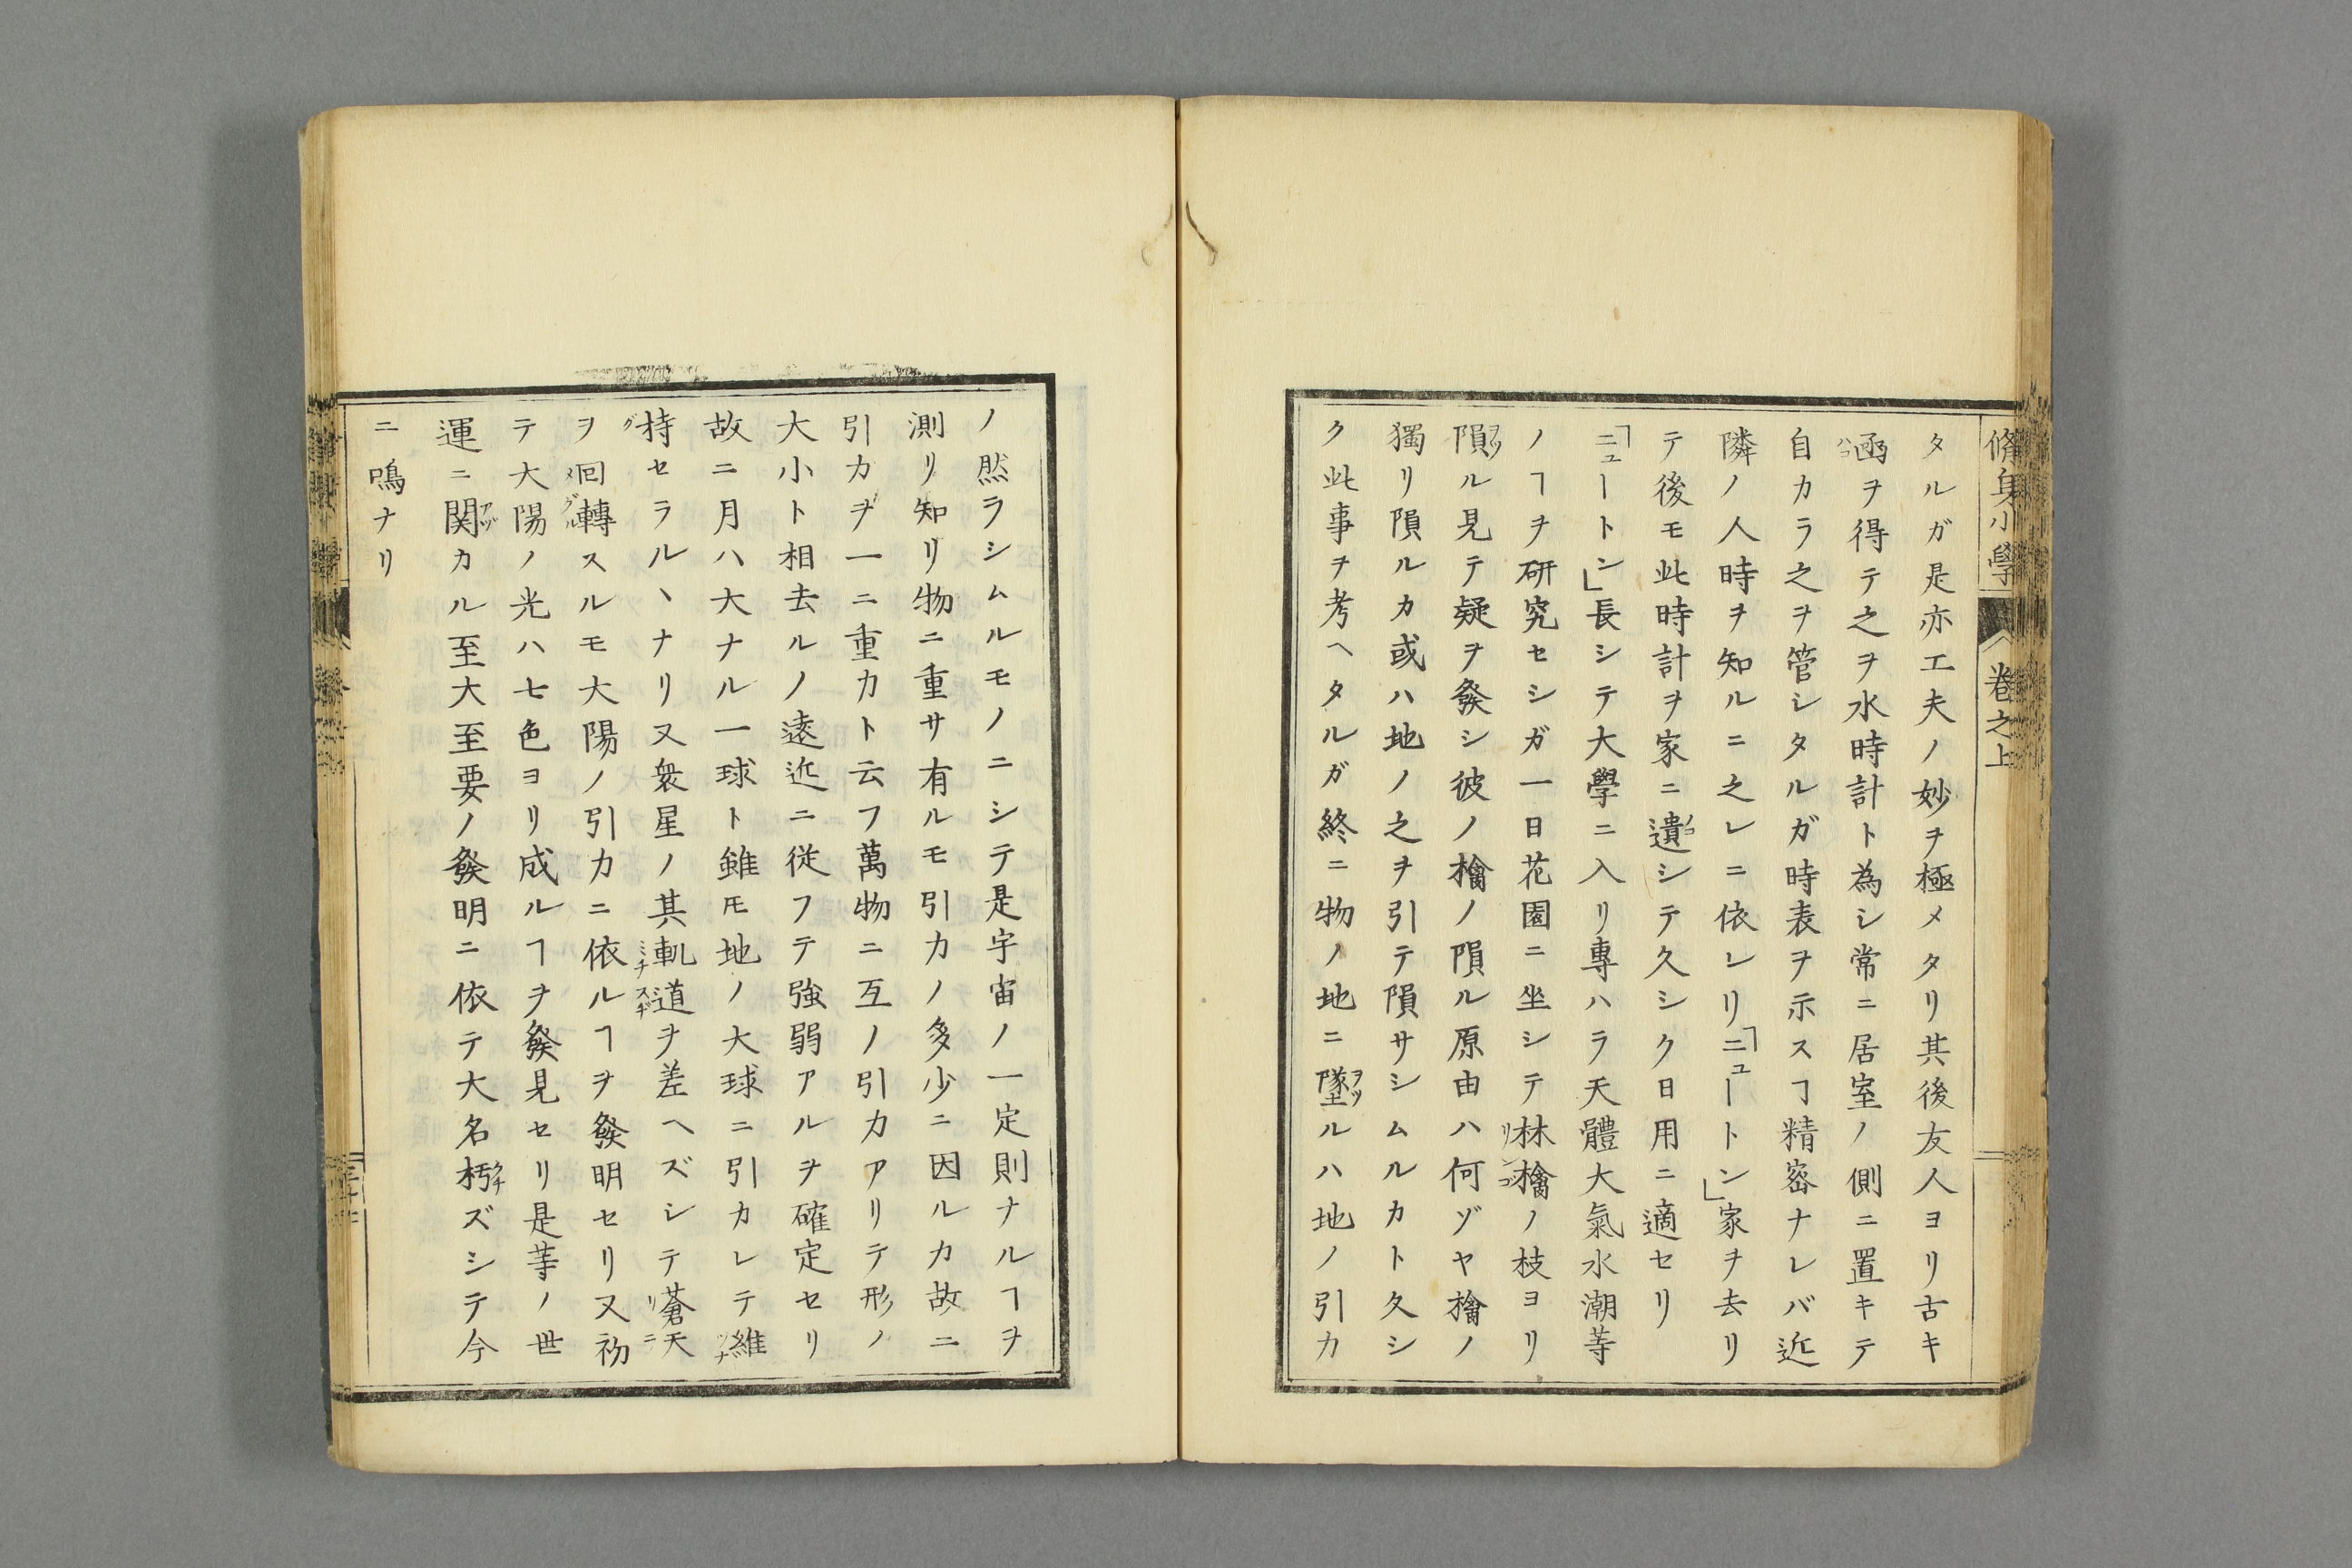 脩身小學 卷之上
タルガ是亦工夫ノ妙ヲ極メタリ其後友人ヨリ古キ
函ヲ得テ之ヲ水時計ト為シ常ニ居室ノ側ニ置キテ
自カラ之ヲ管シタルガ時表ヲ示スヿ精密ナレバ近
隣ノ人時ヲ知ルニ之レニ依レリ「ニュートン」家ヲ去リ
テ後モ此時計ヲ家ニ遺シテ久シク日用ニ適セリ
「ニュートン」長シテ大學ニ入リ專ハラ天體大氣水潮等
ノヿヲ研究セシガ一日花園ニ坐シテ林檎ノ枝ヨリ
隕ル見テ疑ヲ發シ彼ノ檎ノ隕ル原由ハ何ゾヤ檎ノ
獨リ隕ルカ或ハ地ノ之ヲ引テ隕サシムルカト久シ
ク此事ヲ考ヘタルガ終ニ物ノ地ニ墜ルハ地ノ引力
ノ然ラシムルモノニシテ是宇宙ノ一定則ナルヿヲ
測リ知リ物ニ重サ有ルモ引力ノ多少ニ因ルカ故ニ
引力ヲ一ニ重力ト云フ萬物ニ互ノ引力アリテ形ノ
大小ト相去ルノ遠近ニ従フテ強弱アルヲ確定セリ
故ニ月ハ大ナル一球ト雖𪜈地ノ大球ニ引カレテ維
持セラルヽナリ又衆星ノ其軌道ヲ差ヘズシテ蒼天
ヲ囘轉スルモ大陽ノ引力ニ依ルヿヲ發明セリ又初
テ大陽ノ光ハ七色ヨリ成ルヿヲ發見セリ是等ノ世
運ニ関カル至大至要ノ發明ニ依テ大名朽ズシテ今
ニ鳴ナリ